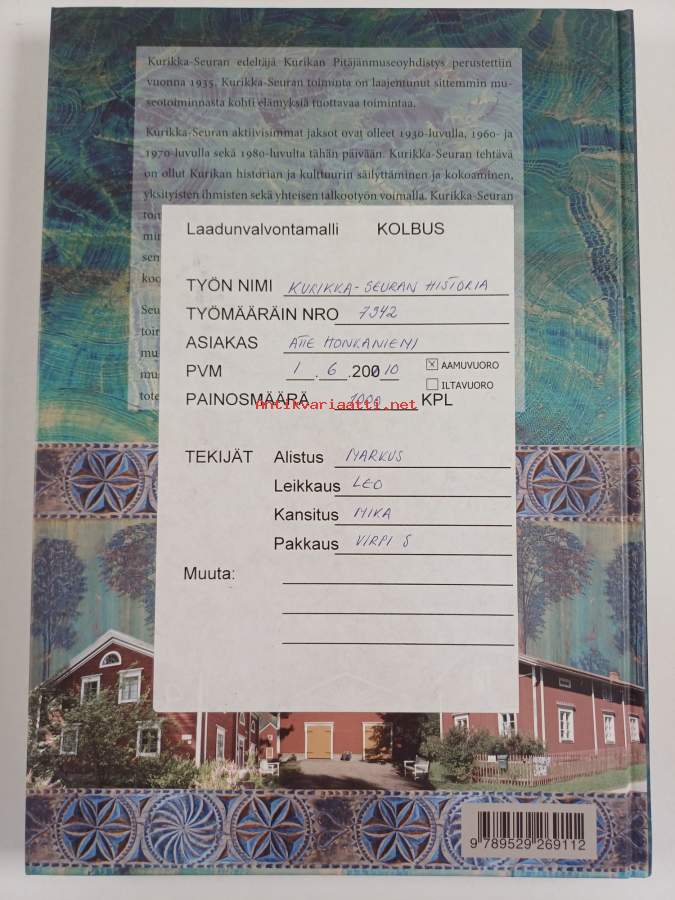 Kurikka-Seuran edeltäjä Kurikan Pitäjänmuseoyhdistys perustettiin
vuonna 1935. Kurikka-Seuran toiminta on laajentunut sittemmin mu-
seotoiminnasta kohti elämyksiä tuottavaa toimintaa.
Kurikka-Seuran aktiivisimmat jaksot ovat olleet 1930-luvulla, 1960- ja
1970-luvulla sekä 1980-luvulta tähän päivään. Kurikka-Seuran tehtävä
on ollut Kurikan historian ja kulttuurin säilyttäminen ja kokoaminen,
yksityisten ihmisten sekä yhteisen talkootyön voimalla. Kurikka-Seuran
Laadunvalvontamalli KOLBUS
TYÖN NIMI KURIKKA-SEURAN HISTORIA
TYÖMÄÄRÄIN NRO 7342
ASIAKAS ATTE HONKANIEMI
PVM 1.6.20010 ☒ AAMUVUORO
☐ ILTAVUORO
PAINOSMÄÄRÄ 1000 KPL
Antikvariaatti.net
TEKIJÄT Alistus MARKUS
Leikkaus LEO
Kansitus MIKA
Pakkaus VIRPI S
Muuta:
9 789529 269112